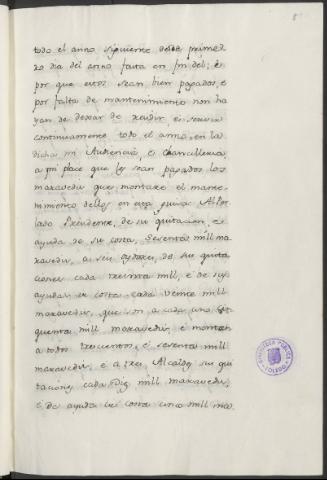 8
todo el año siguiente desde primer
ro dia del año fasta en fin del; e
por que estos sean bien pagados, e
por falta de mantenimiento non ha
yan de dexar de residir e servir
continuamente todo el año, en la
dicha mi Audiencia, e Chancilleria,
a mi place que les sean pagados los
maravedis que montare el mante-
nimiento dellos en esta guisa: Al Per
lado Presidente, de su quitacion, e
ayuda de su costa, Sesenta mill ma
ravedis, a seis oydores, de su quita
ciones cada treinta mill, e de sus
ayudas de costa cada veinte mill
maravedis, que son a cada uno cin
quenta mill maravedis, e montan
a todos trescientos, e sesenta mill
maravedis; e a tres Alcaldes su qui
taciones cada diez mill maravedis,
e de ayuda de costa cinco mill ma
BIBLIOTECA PUBLICA
TOLEDO